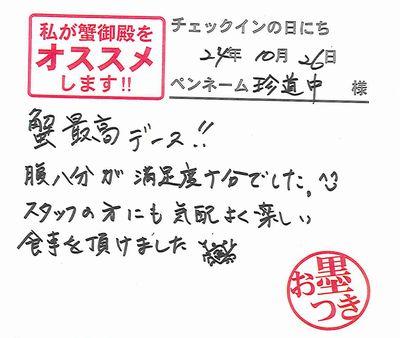 私が蟹御殿を
オススメ
します!!
チェックインの日にち
24年 10月 26日
ペンネーム 珍道中 様
蟹最高デース!!
腹八分が満足度十分でした。
スタッフの方にも気配よく楽しい
食事を頂けました
お墨
つき